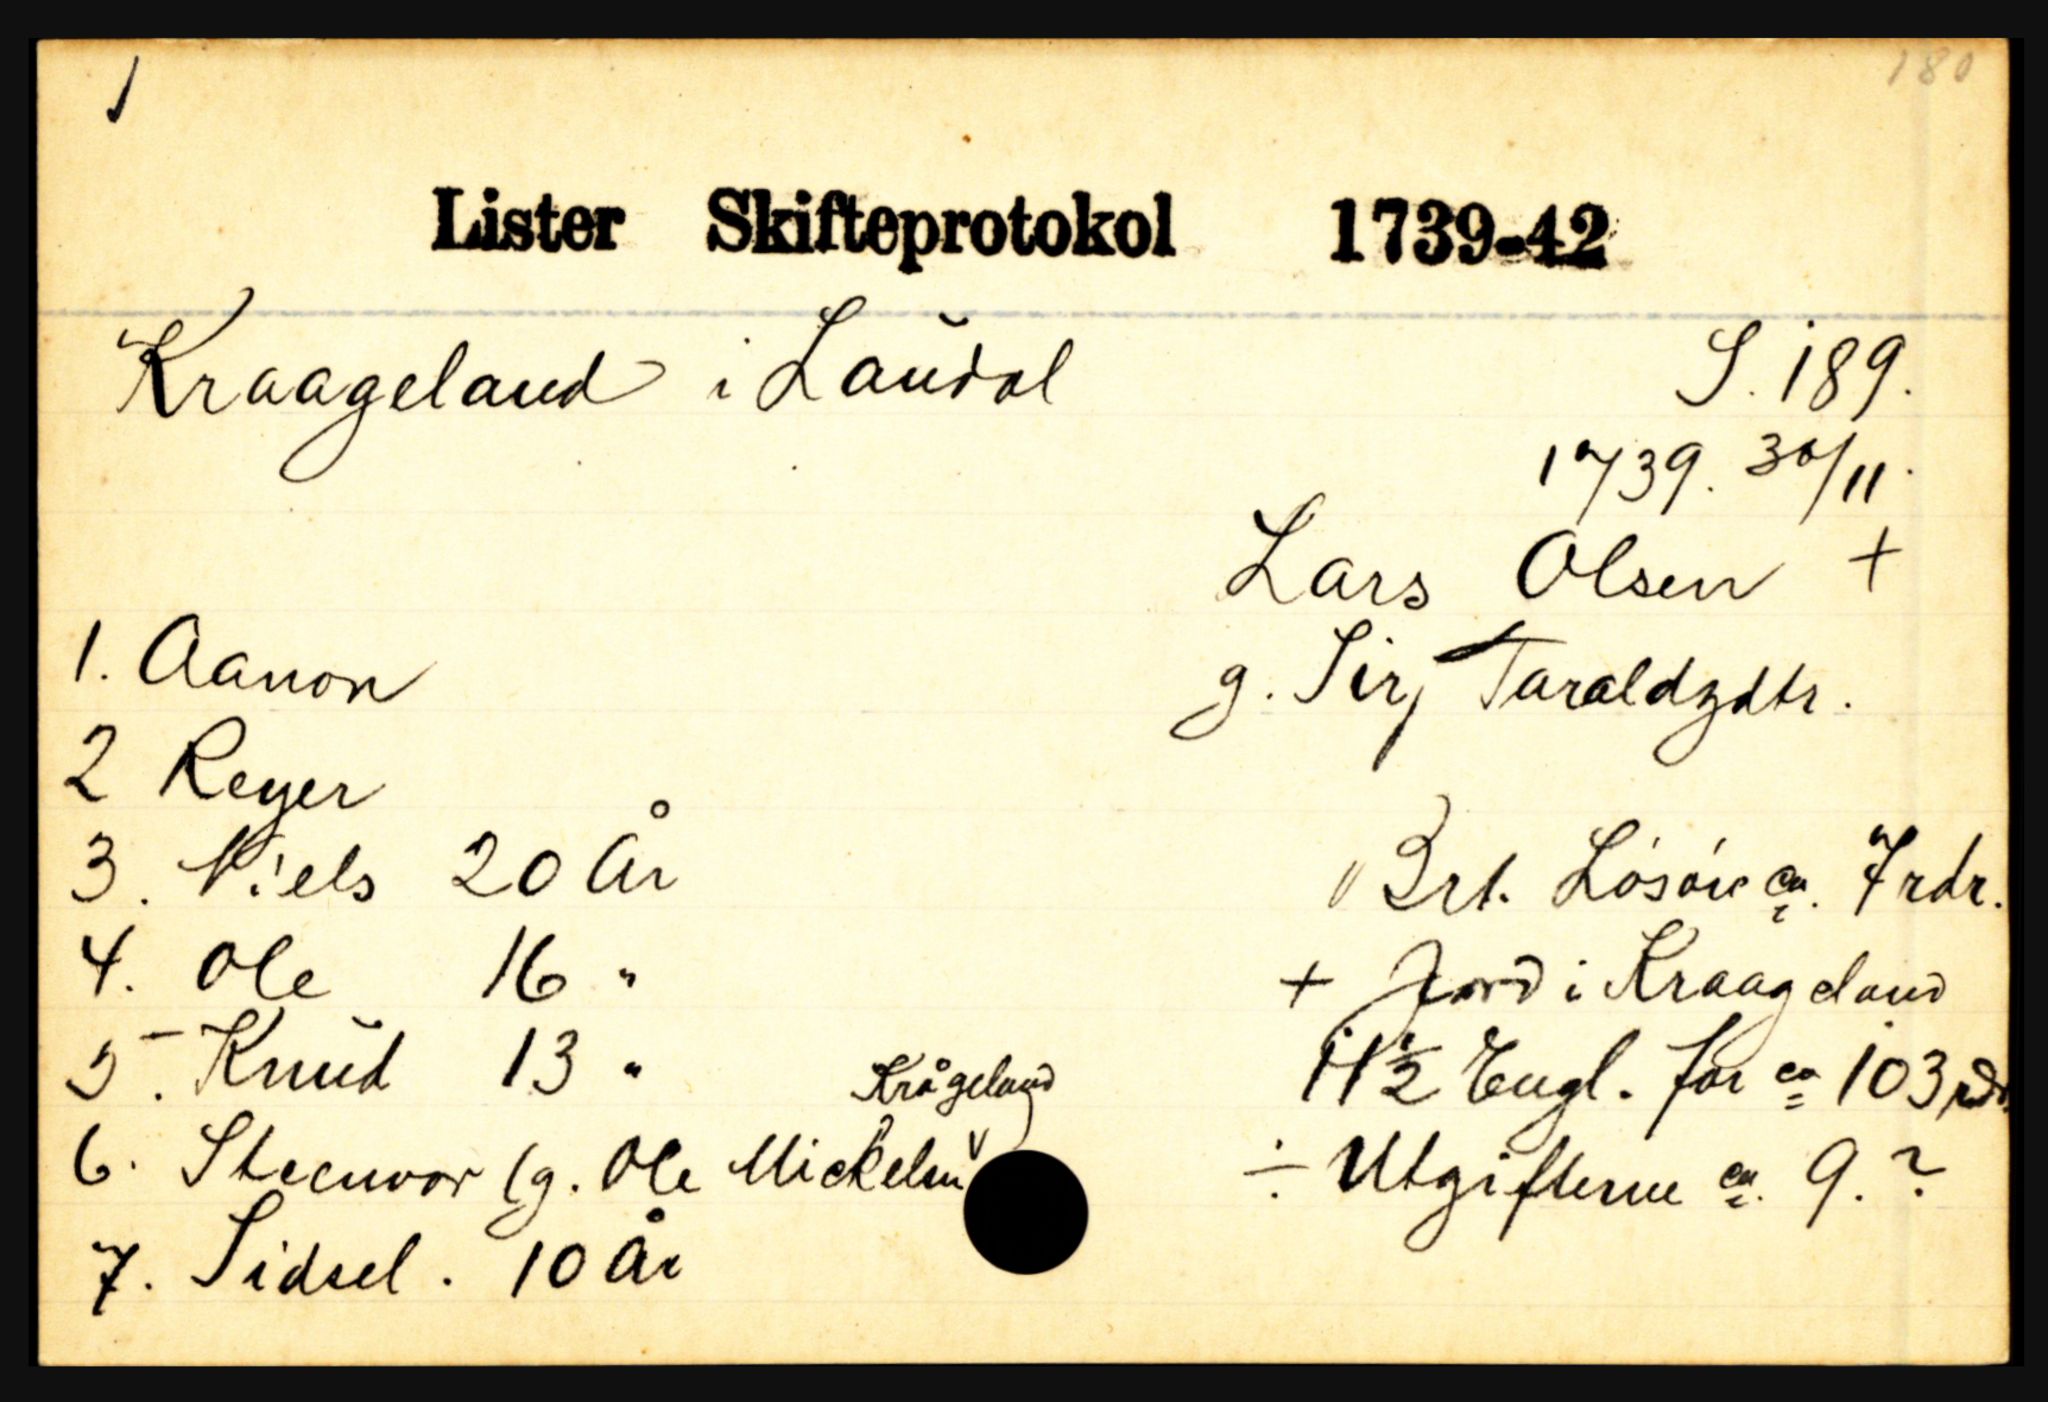 180
Lister Skifteprotokol 1739-42
Kraageland i Laudal S. 189.
1739. 30/11.
Lars Olsen +
g. Sirj Taraldzdtr.
1. Aanon
2 Reyer
3. Niels 20 År
4. Ole 16 "
5. Knud 13 "
6. Steenvor (g. Ole Mickelsn Krågeland)
7. Sidsel. 10 År
Brt. Løsøre ca. 7 rdr.
+ Jord i Kraageland
1 1/2 Engl. for ca 103 rdr.
÷ Utgifterne ca. 9. ?